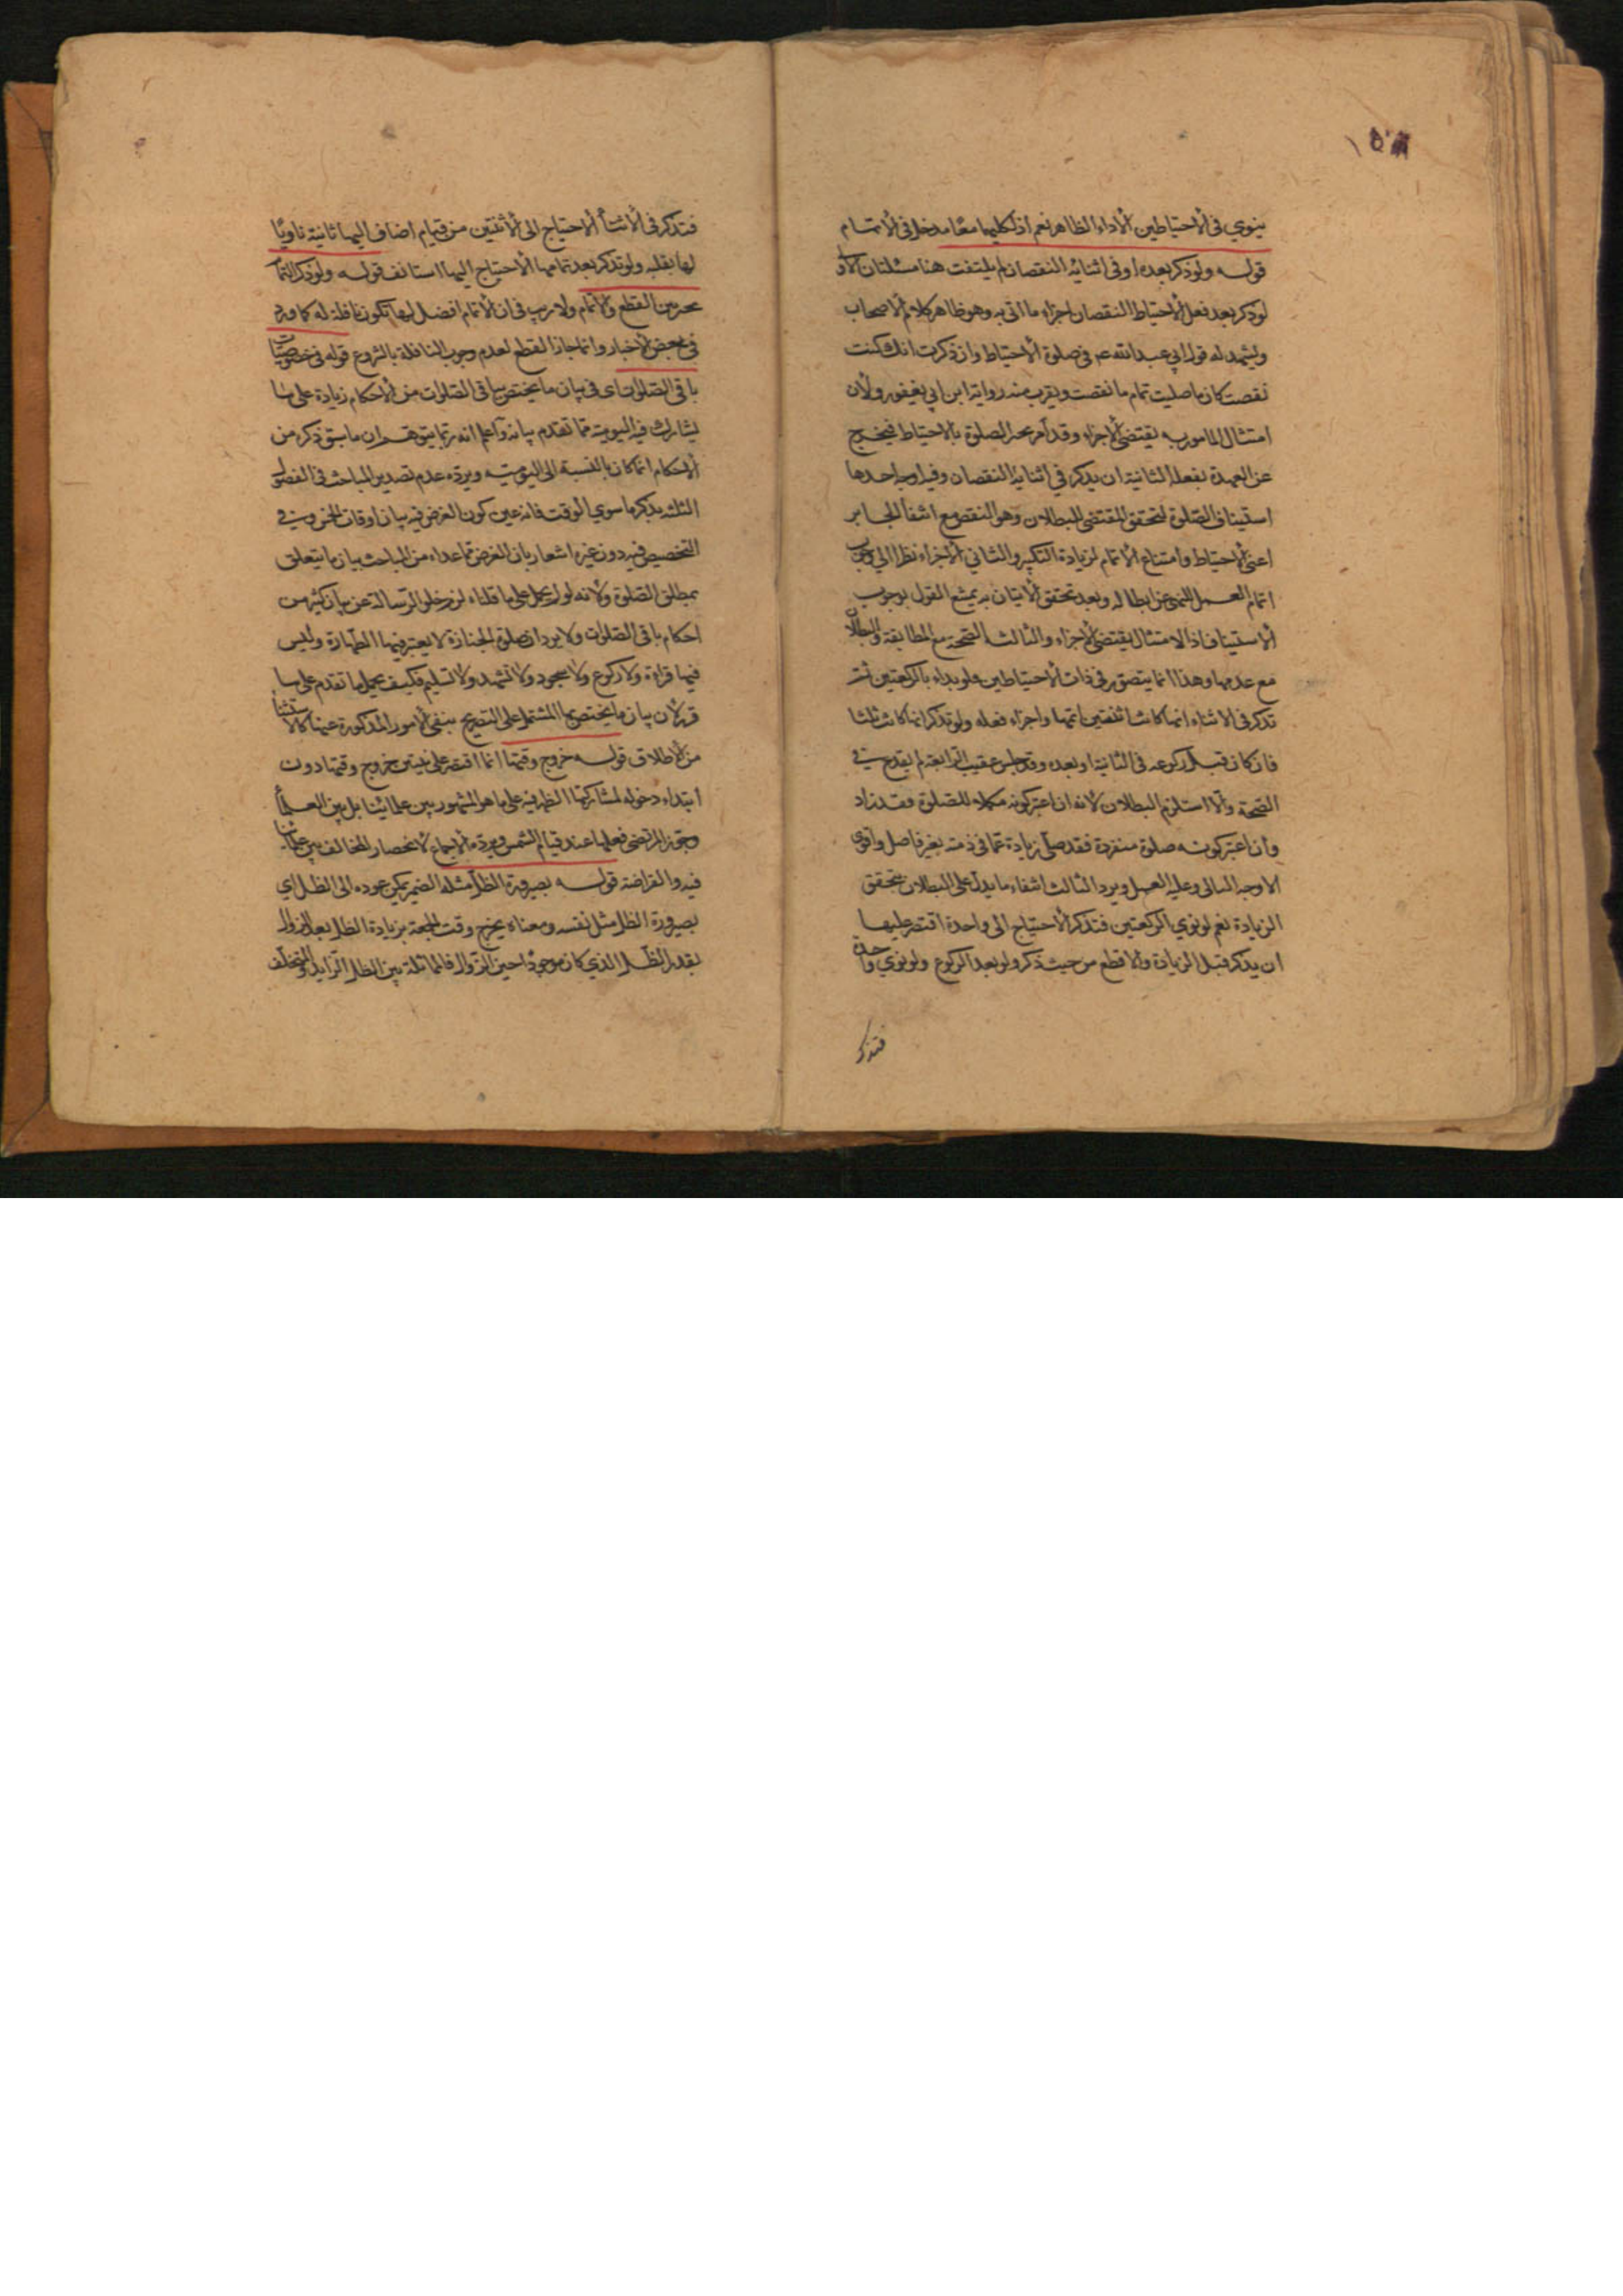 ينوي في الاحتياطين الاداء الظاهر نعم اذ لكليهما معا مدخل في الاتمام
قوله ولو ذكر بعده او في اثنائه النقصان لم يلتفت هنا مسئلتان الاولى
لو ذكر بعد فعل الاحتياط النقصان اجزاء ما اتى به وهو ظاهر كلام الاصحاب
ويشهد له قول ابي عبد الله عم في صلوة الاحتياط وان ذكرت انك كنت
نقصت كان ما صليت تمام ما نقصت ويقرب منه رواية ابن ابي يعفور ولان
امتثال المامور به يقتضي الاجزاء وقد امر بجبر الصلوة بالاحتياط فيخرج
عن العهدة بفعله الثانية ان يذكر في اثنائه النقصان وفيه اوجه احدها
استيناف الصلوة لتحقق المقتضي للبطلان وهو النقص مع انتفاء الجابر
اعني الاحتياط وامتناع الاتمام لزيادة التكبير والثاني الاجزاء نظرا الى وجوب
اتمام العمل للنهي عن ابطاله وبعد تحقق الاتيان به يمتنع القول بوجوب
الاستيناف اذ الامتثال يقتضي الاجزاء والثالث الصحة مع المطابقة والبطلان
مع عدمها وهذا انما يتصور في ذات الاحتياطين فلو بداء بالركعتين ثم
تذكر في الاثناء انها كانت اثنتين اتمها واجزاء فعله ولو تذكر انها كانت ثلثا
فان كان قبل ركوعه في الثانية او بعده وقد جلس عقيب الرابعة لم يقدح في
الصحة والا استلزم البطلان لانه ان اعتبر كونه مكملا للصلوة فقد زاد
وان اعتبر كونه صلوة منفردة فقد صلى زيادة عما في ذمته بغير فاصل واقوى
الاوجه الثاني وعليه العمل ويرد الثالث انتفاء ما يدل على البطلان بتحقق
الزيادة نعم لو نوي الركعتين فتذكر الاحتياج الى واحدة اقتصر عليها
ان يذكر قبل الزيادة والا قطع من حيث ذكر ولو بعد الركوع ولو نوي واحدة
فتذكر
فتذكر في الاثناء الاحتياج الى الاثنتين من قيام اضاف اليها ثانية ناويا
لها بقلبه ولو تذكر بعد تمامها الاحتياج اليها استانف قوله ولو ذكر التمام
تخير بين القطع والاتمام ولا ريب في ان الاتمام افضل لها تكون نافلة له كما ورد
في بعض الاخبار وانما جاز القطع لعدم وجوب النافلة بالشروع قوله في خصوصيات
باقي الصلوات اي في بيان ما يختص بباقي الصلوات من الاحكام زيادة على ما
يشارك فيه اليومية مما تقدم بيانه واعلم انه ربما يتوهم ان ما سبق ذكره من
الاحكام انما كان بالنسبة الى اليومية ويرده عدم تصدير المباحث في الفصول
الثلثة بذكر ما سوي الوقت فانه عين كون الغرض فيه بيان اوقات الخمس وفي
التخصيص فيه دون غيره اشعار بان الغرض مما عداه من المباحث بيان ما يتعلق
بمطلق الصلوة ولانه لو لم يحمل على ما قلناه لزم خلو الرسالة عن بيان كثير من
احكام باقي الصلوات ولا يرد ان صلوة الجنازة لا يعتبر فيها الطهارة وليس
فيها قراءة ولا ركوع ولا سجود ولا تشهد ولا تسليم فكيف يحمل ما تقدم على ما
قرر لان بيان ما يختص بها المشتمل على التصريح بنفي الامور المذكورة عينا كالاستثناء
من الاطلاق قوله خروج وقتها انما اقتصر على تبيين خروج وقتها دون
ابتداء دخوله لمشاركتها الظهر فيه على ما هو المشهور بين علمائنا بل بين العلماء
وتجوز المرتضى فعلها عند قيام الشمس ويرده الاجماع لانحصار المخالف بين علمائنا
فيه وانقراضه قوله بصيرورة الظل مثله الضمير يمكن عوده الى الظل اي
بصيرورة الظل مثل نفسه ومعناه يخرج وقت الجمعة بزيادة الظل بعد الزوال
بقدر الظل الذي كان موجودا حين الزوال فالمماثلة بين الظل الزايد والمتخلف